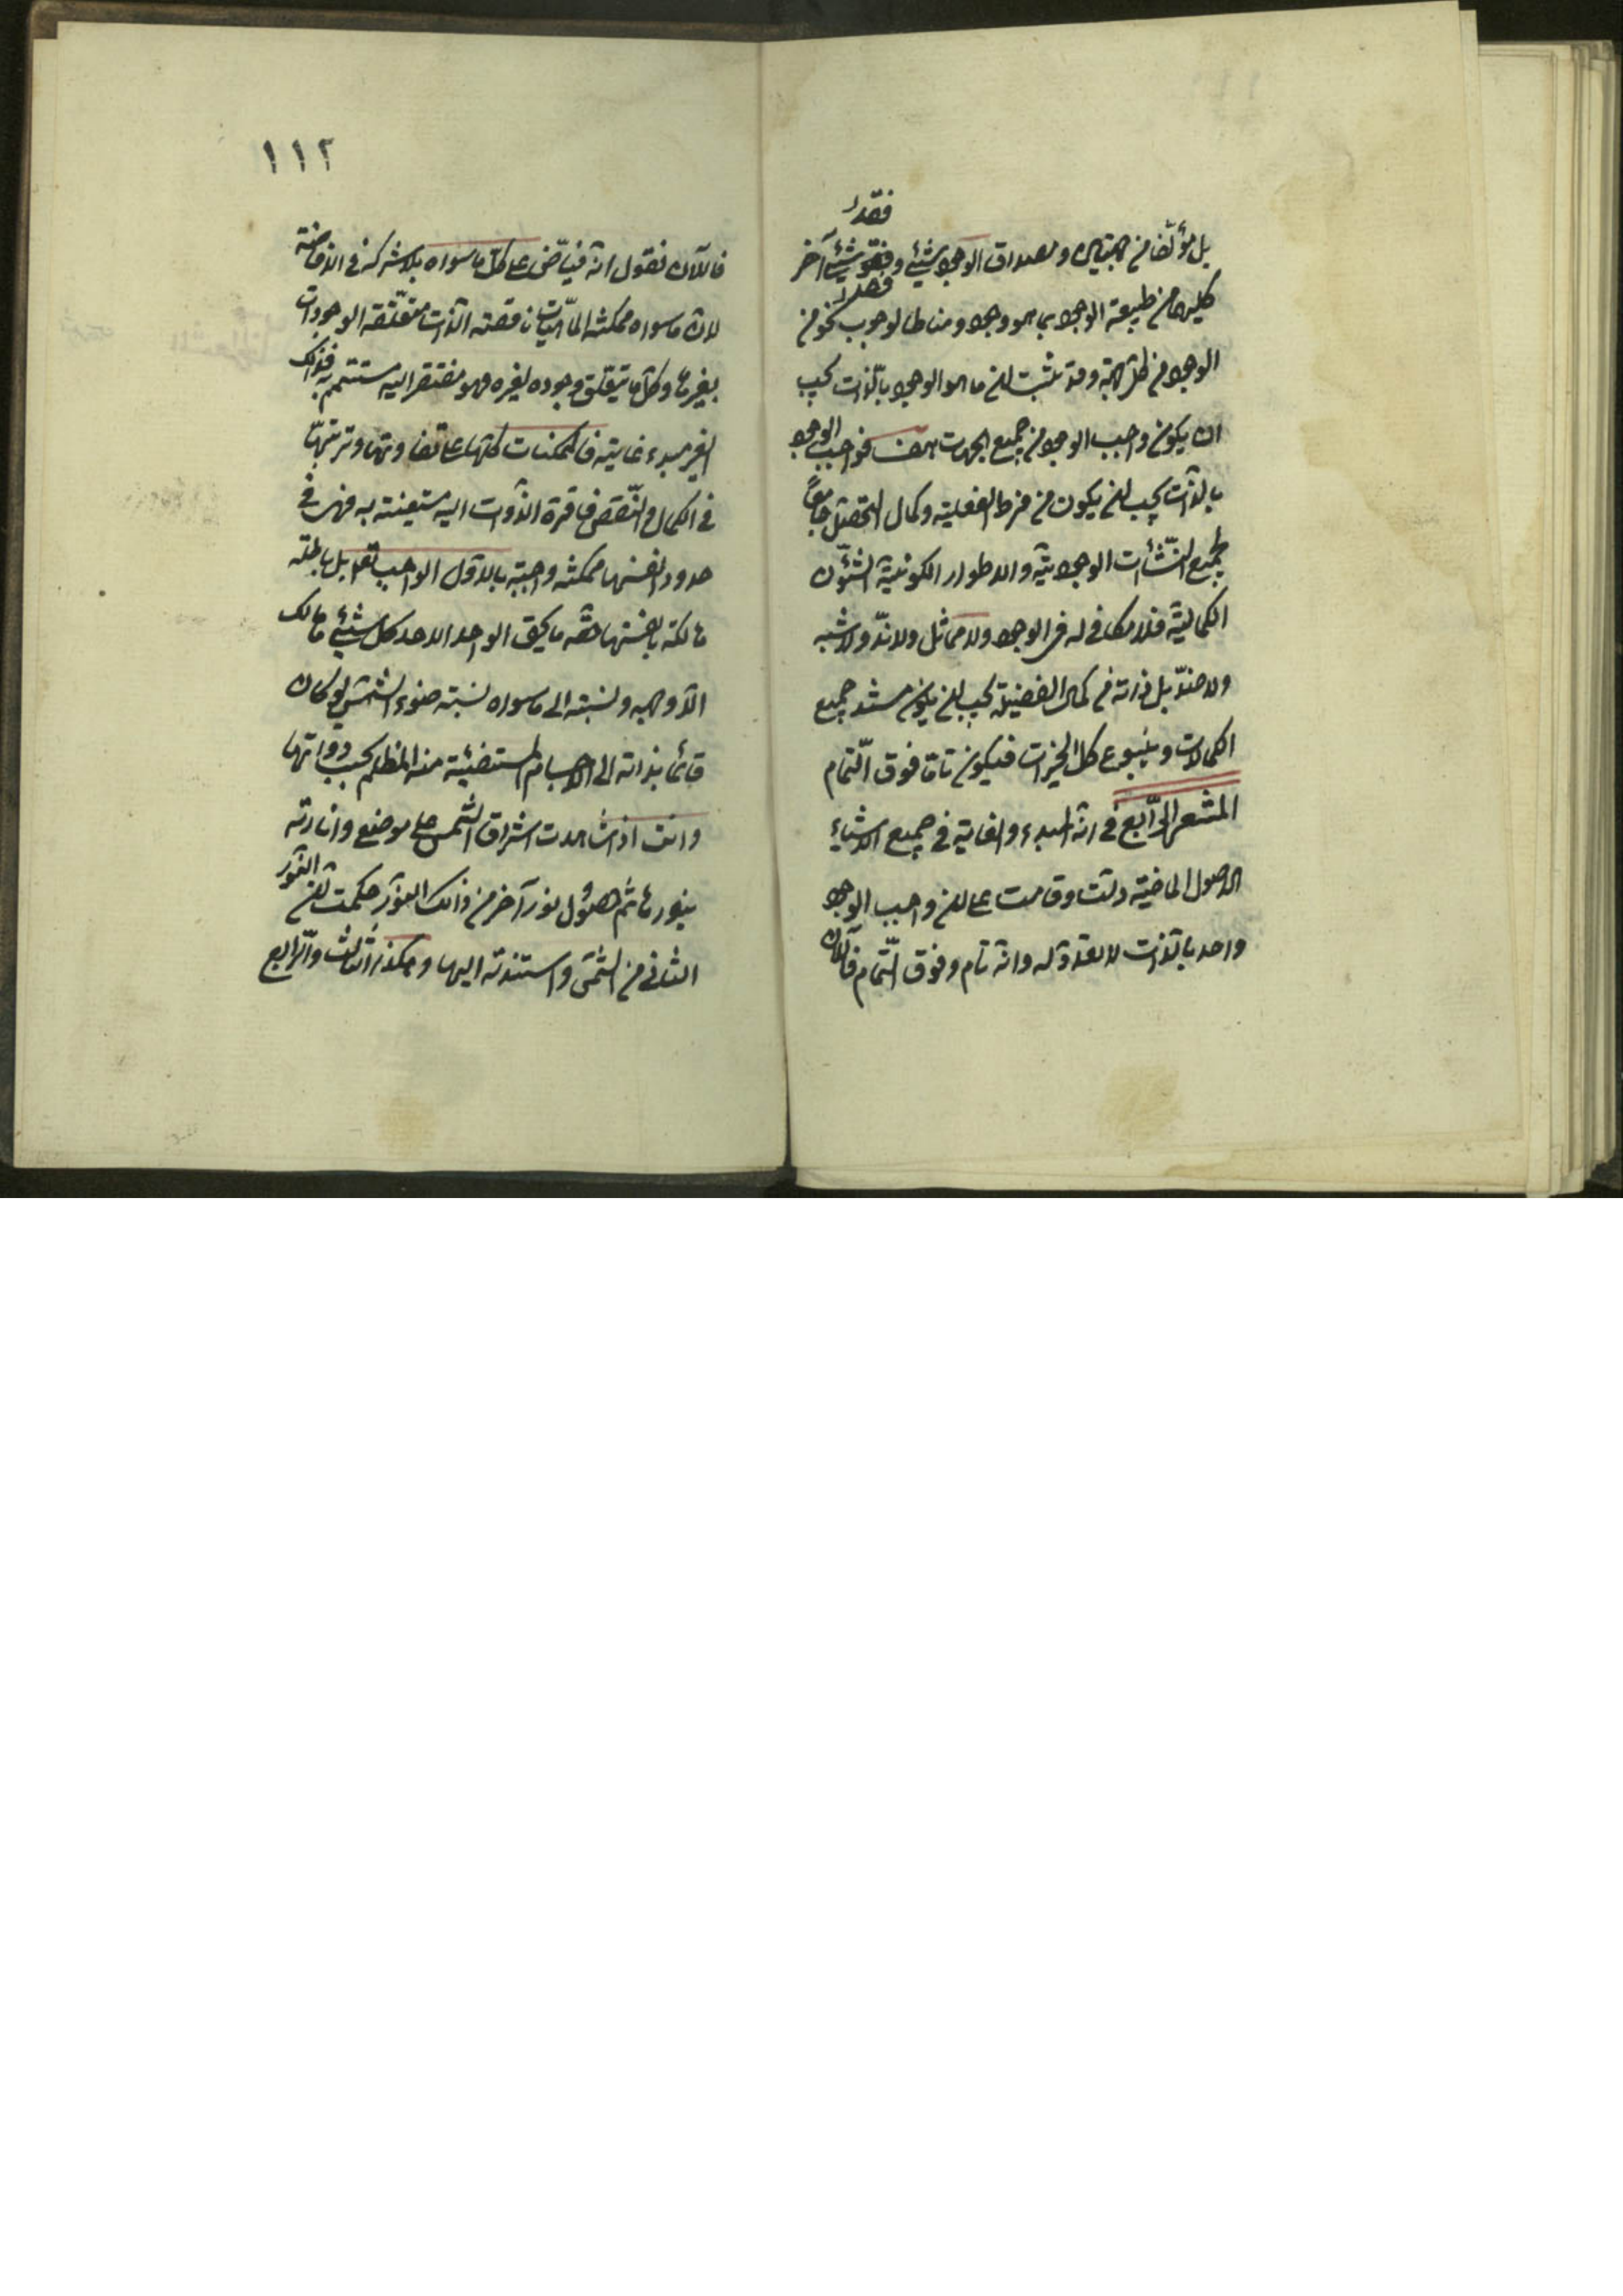 فقد
بل مؤلفا من جهتين ومصداق الوجود شيئ وفقد شيئ آخر
كليهما من طبيعة الوجود بما هو وجود ومناط الوجوب نحو من
الوجود من كل جهة وقد ثبت ان ما هو الوجود بالذات يجب
ان يكون واجب الوجود من جميع الجهات هف فواجب الوجود
بالذات يجب ان يكون من فرط الفعلية وكمال التحصل جامعا
لجميع النشئات الوجودية والاطوار الكونية الشئون
الكمالية فلا مكافي له في الوجود ولا مماثل ولا ند ولا شبه
ولا ضد بل ذاته من كمال الفضيلة يجب ان يكون مستند جميع
الكمالات وينبوع كل الخيرات فيكون تاما فوق التمام
المشعر الرابع في انه المبدء والغاية في جميع الاشياء
الاصول الماضية دلت وقامت على ان واجب الوجود
واحد بالذات لا تعدد له وانه تام وفوق التمام فالان
١١٢
فالآن نقول انه فياض على كل ما سواه بلا شركة في الافاضة
لان ما سواه ممكنة الماهيات ناقصة الذات متعلقة الوجودات
بغيرها وكل ما يتعلق وجوده لغيره فهو مفتقر اليه مستتم به فذلك
الغير مبدء غايته فالممكنات كلها على تفاوتها وترتبها
في الكمال والنقص فاقرة الذوات اليه مستغنية به فهى في
حدود انفسها ممكنة واجبة بالاول الواجب تعالى بل باطلة
هالكة بانفسها حقه ما يحق الواحد الاحد كل شيئ هالك
الا وجهه ونسبته الى ما سواه نسبة ضوء الشمس لو كان
قائما بذاته الى الاجسام المستضيئة منه المظلم بحسب ذواتها
وانت اذا شاهدت اشراق الشمس على موضع وانارته
بنورها ثم حصول نور آخر من ذلك النور حكمت بان النور
الثانى من الشمس واستندته اليها وهكذا الثالث والرابع